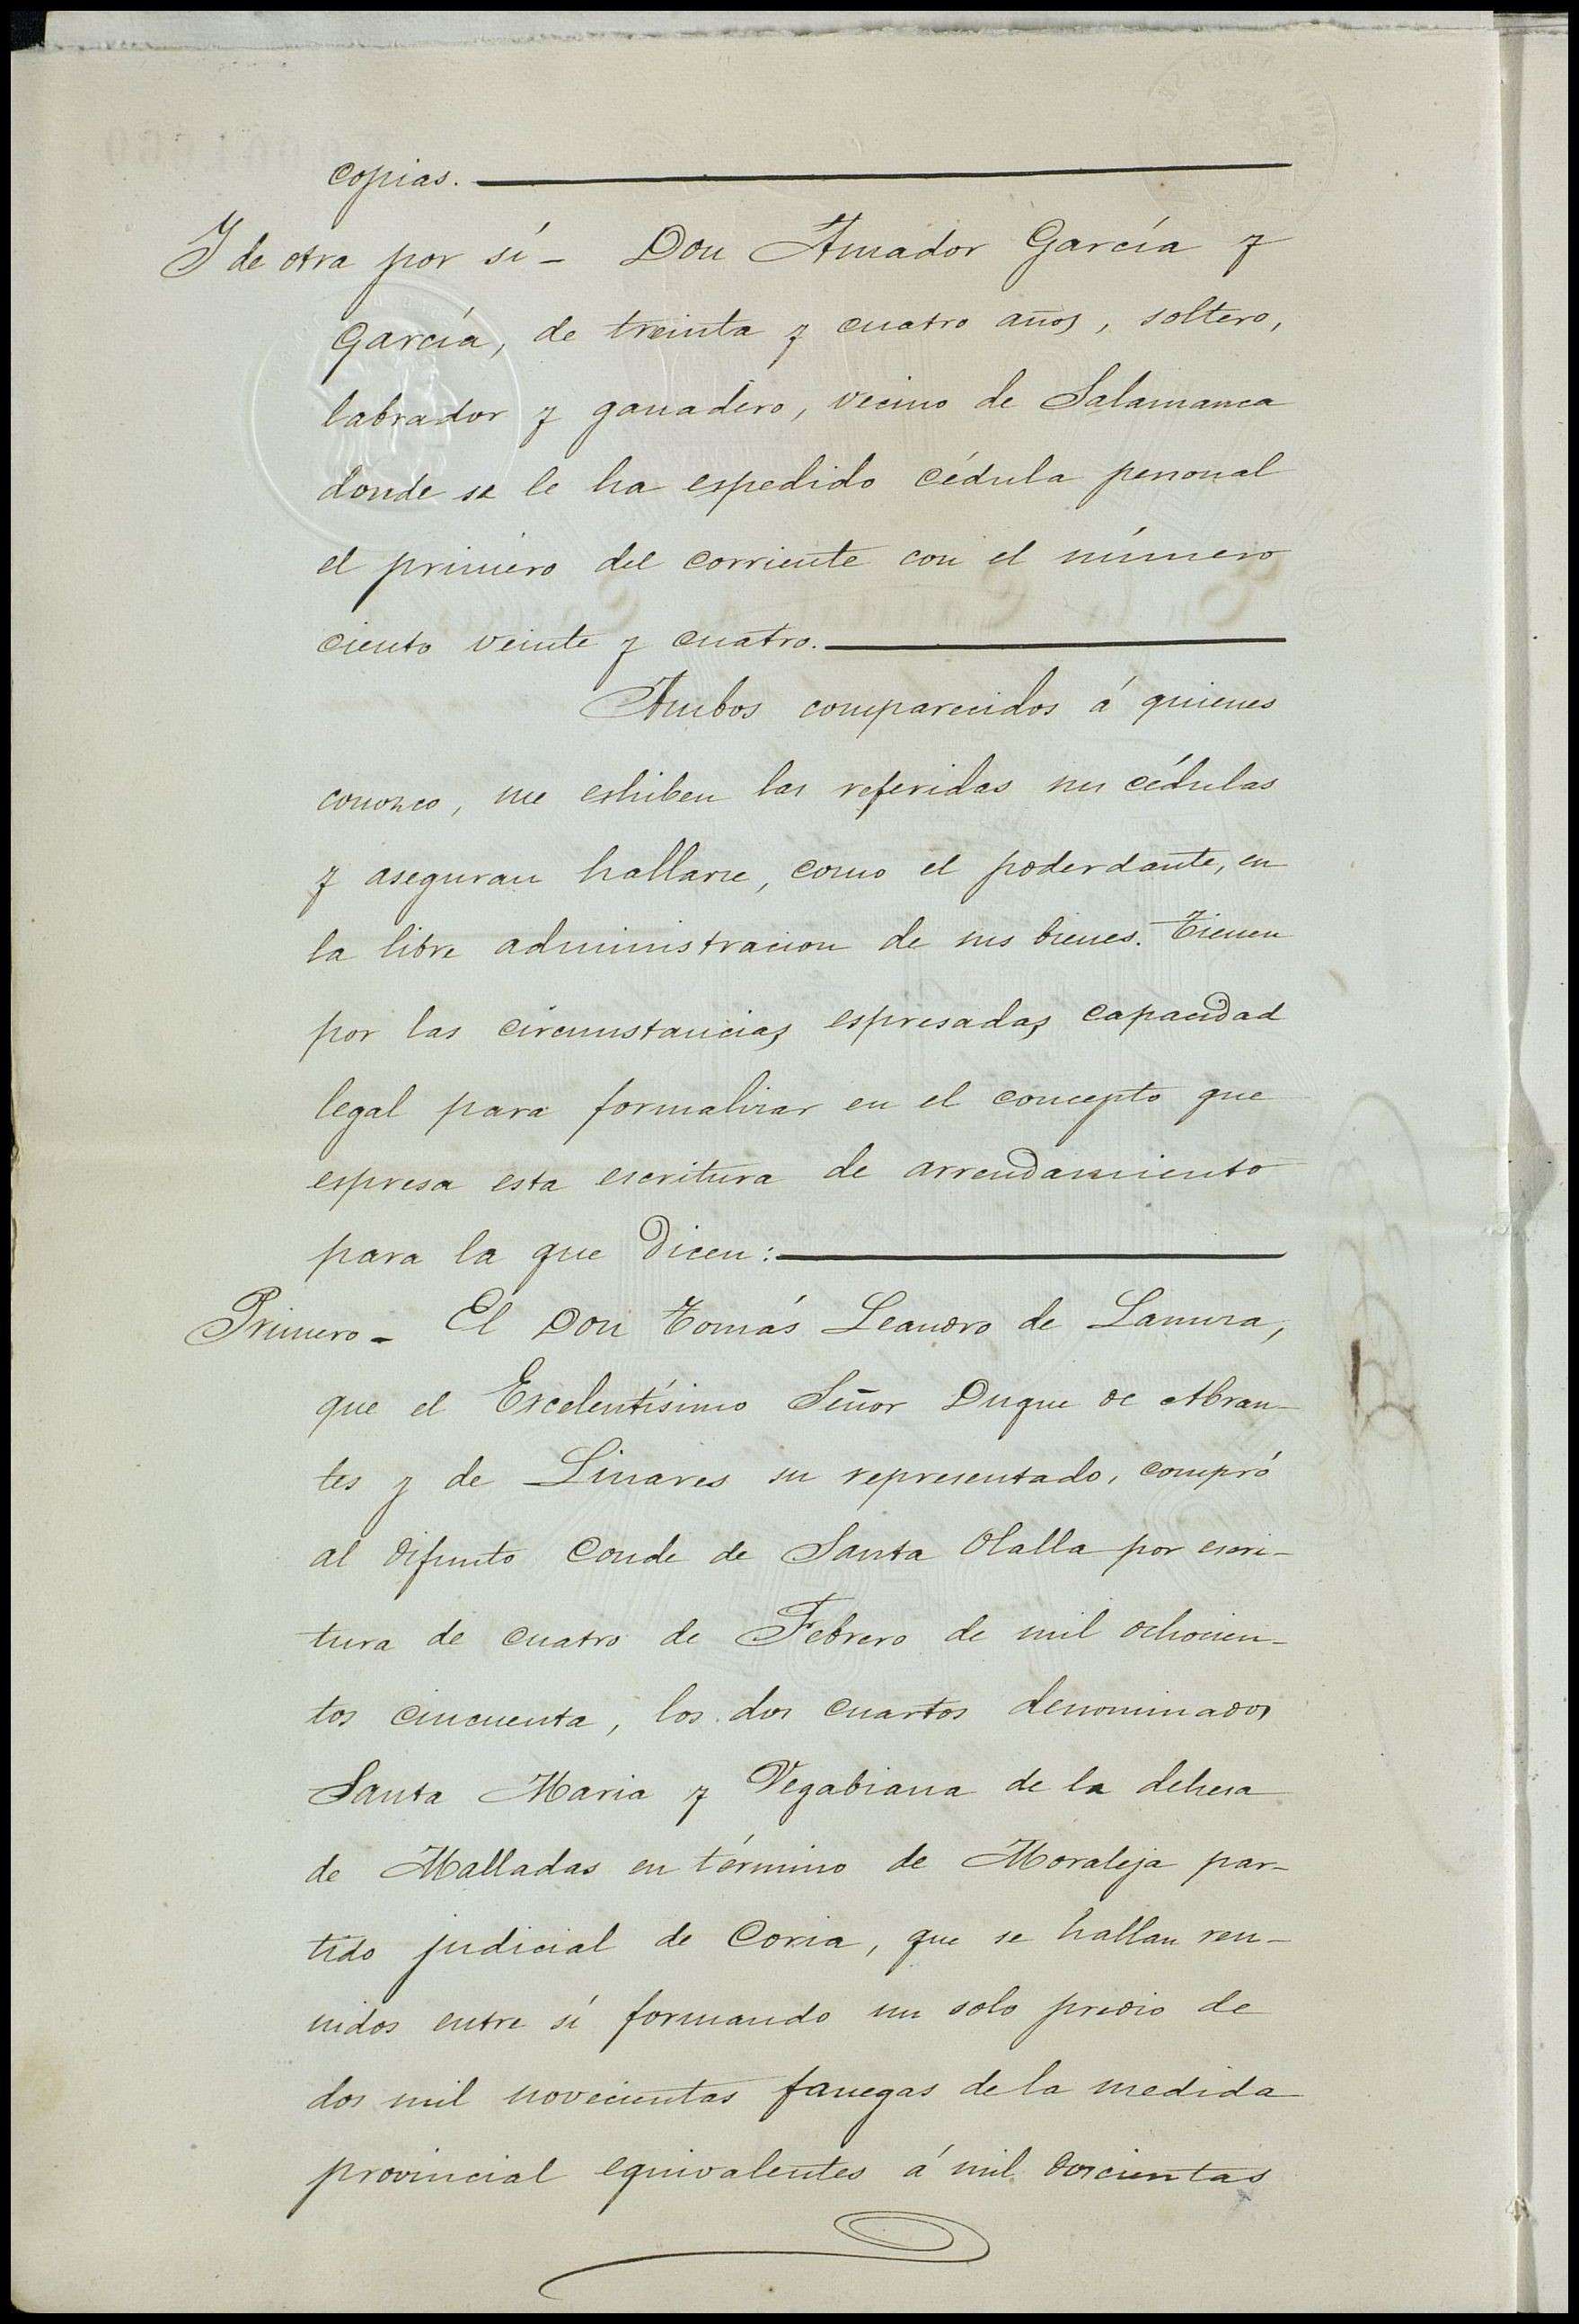 copias.
Y de otra por sí - Don Amador García y
García, de treinta y cuatro años, soltero,
labrador y ganadero, vecino de Salamanca
donde se le ha espedido cédula personal
el primero del corriente con el número
ciento veinte y cuatro.
Ambos comparecidos á quienes
conozco, me exhiben las referidas sus cédulas
y aseguran hallarse, como el poderdante, en
la libre administracion de sus bienes. Tienen
por las circunstancias espresadas capacidad
legal para formalizar en el concepto que
espresa esta escritura de arrendamiento
para la que dicen:
Primero - El Don Tomás Leandro de Lanuza,
que el Excelentísimo Señor Duque de Abran-
tes y de Linares su representado, compró
al difunto Conde de Santa Olalla por escri-
tura de cuatro de Febrero de mil ochocien-
tos cincuenta, los dos cuartos denominados
Santa Maria y Vegabiana de la dehesa
de Malladas en término de Moraleja par-
tido judicial de Coria, que se hallan reu-
nidos entre sí formando un solo predio de
dos mil novecientas fanegas de la medida
provincial equivalentes á mil doscientas